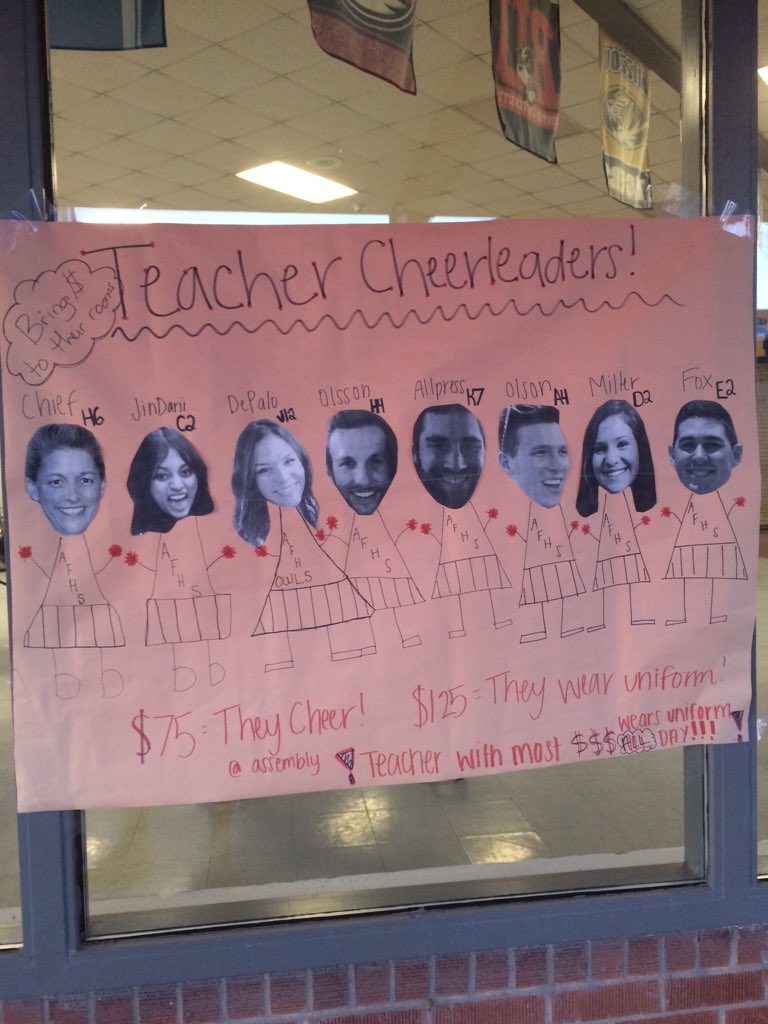 Teacher Cheerleaders!
Bring $
to their rooms
Chief H6
JinDani C2
DePalo J12
Olsson H4
Allpress K7
Olson A4
Miller D2
Fox E2
AFHS
AFHS
AFHS
OWLS
AFHS
AFHS
AFHS
AFHS
AFHS
$75 = They Cheer!
@ assembly
$125 = They wear uniform!
! Teacher with most $$$ wears uniform
ALL DAY!!! !